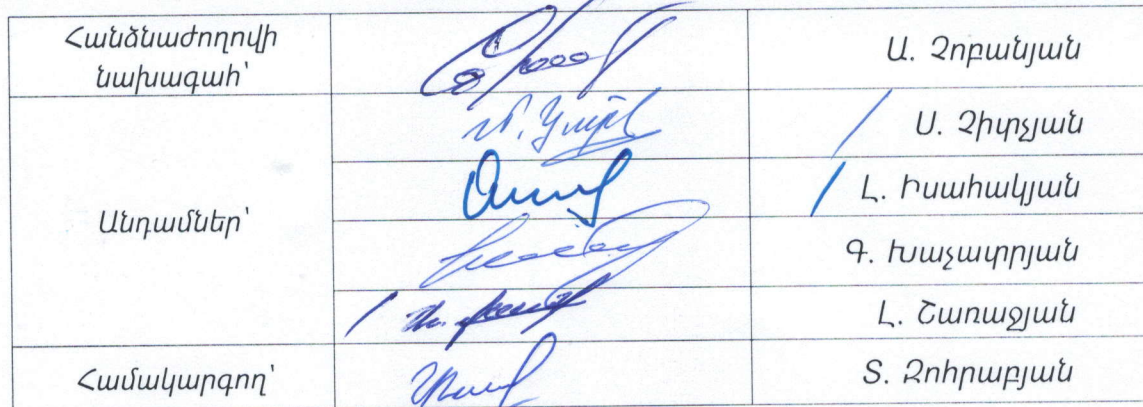 Հանձնաժողովի
նախագահ՝
Ա. Չոբանյան
Անդամներ՝
Ս. Չիրչյան
Լ. Իսահակյան
Գ. Խաչատրյան
Լ. Շառաջյան
Համակարգող՝
Տ. Զոհրաբյան